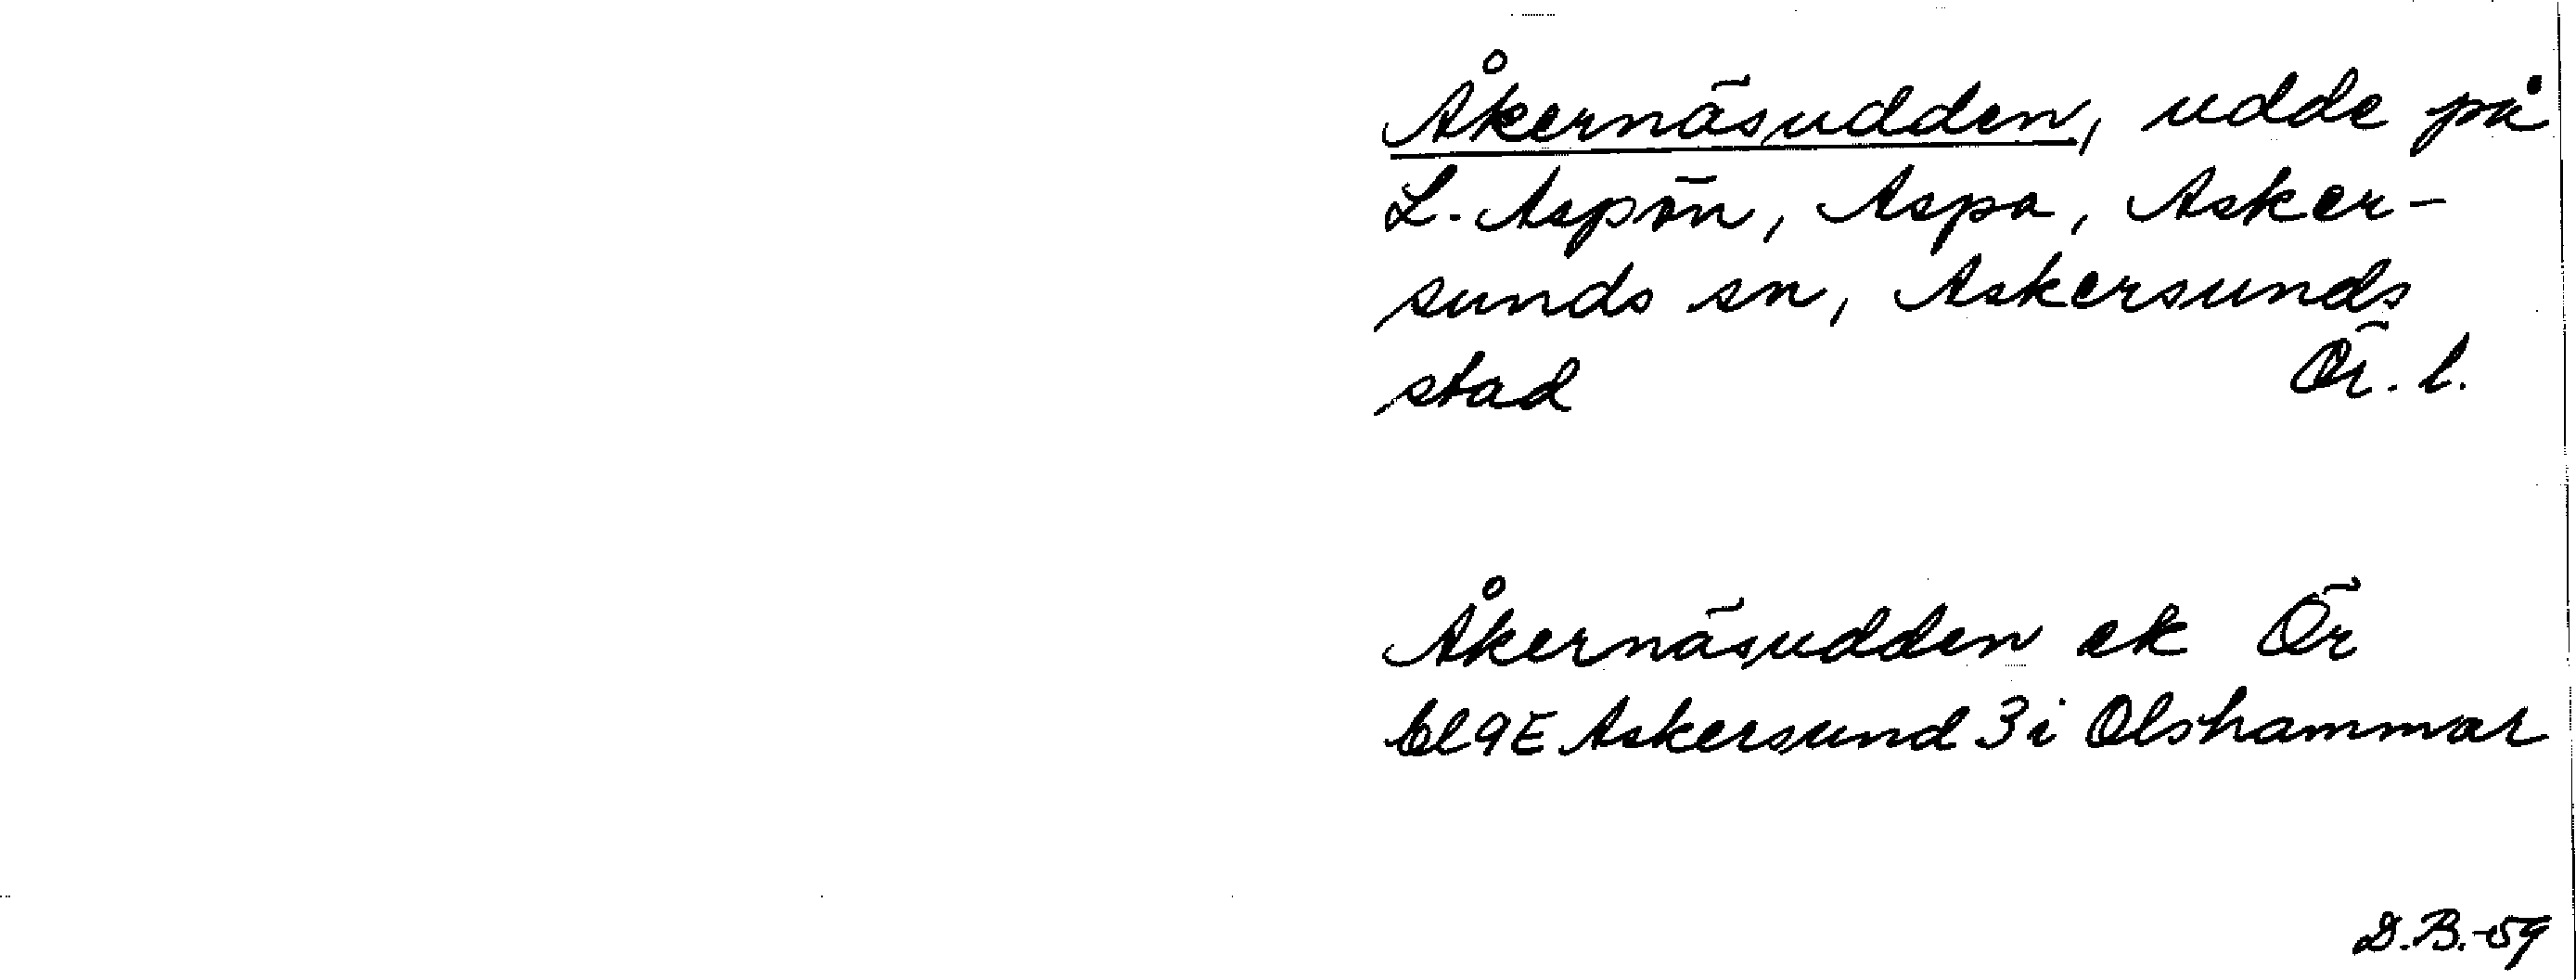 Åkernäsudden, udde på
L. Aspön, Aspa, Asker-
sunds sn, Askersunds
stad Ör. l.
Åkernäsudden ek Ör
bl 9E Askersund 3i Olshammar
D.B.-59